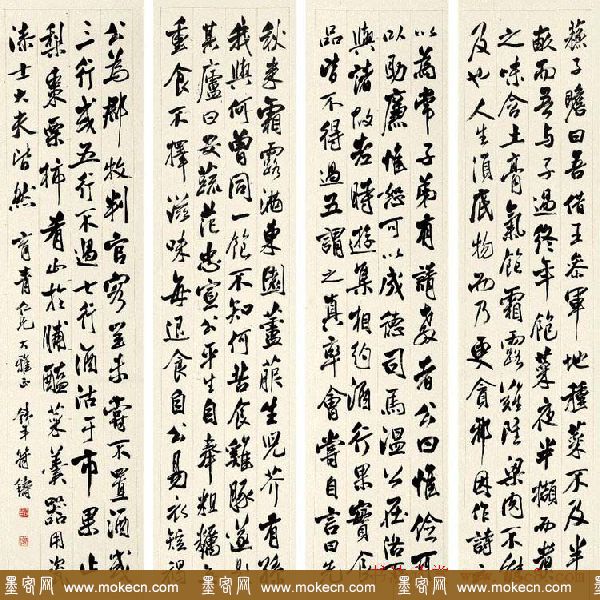 蘇子瞻曰吾借王參軍地種菜不及半
畝而吾与子過終年飽菜夜半擷而煮
之味含土膏氣飽霜露雖梁肉不能
及也人生須底物而乃更貪耶因作詩云
以為常子弟有請教者公曰惟儉可
以助廉惟恕可以成德司馬溫公在洛
與諸故老時遊集相約酒行果實食
品皆不得過五謂之真率會嘗自言曰先
秋來霜露滿東園蘆菔生兒芥有孫
我與何曾同一飽不知何苦食雞豚遂
其廬曰安蔬范忠宣公平生自奉粗糲
重食不擇滋味每退食自公易衣短褐
公為郡牧判官客至未嘗不置酒或
三行或五行不過七行酒沽于市果止
梨棗栗柿肴止於脯醢菜羹器用瓷
漆士大夫皆然育青仁兄大雅正鐵年符鑄
墨客网 www.mokecn.com
墨客网 www.mokecn.com
墨客网 www.mokecn.com
墨客网 www.mokecn.com